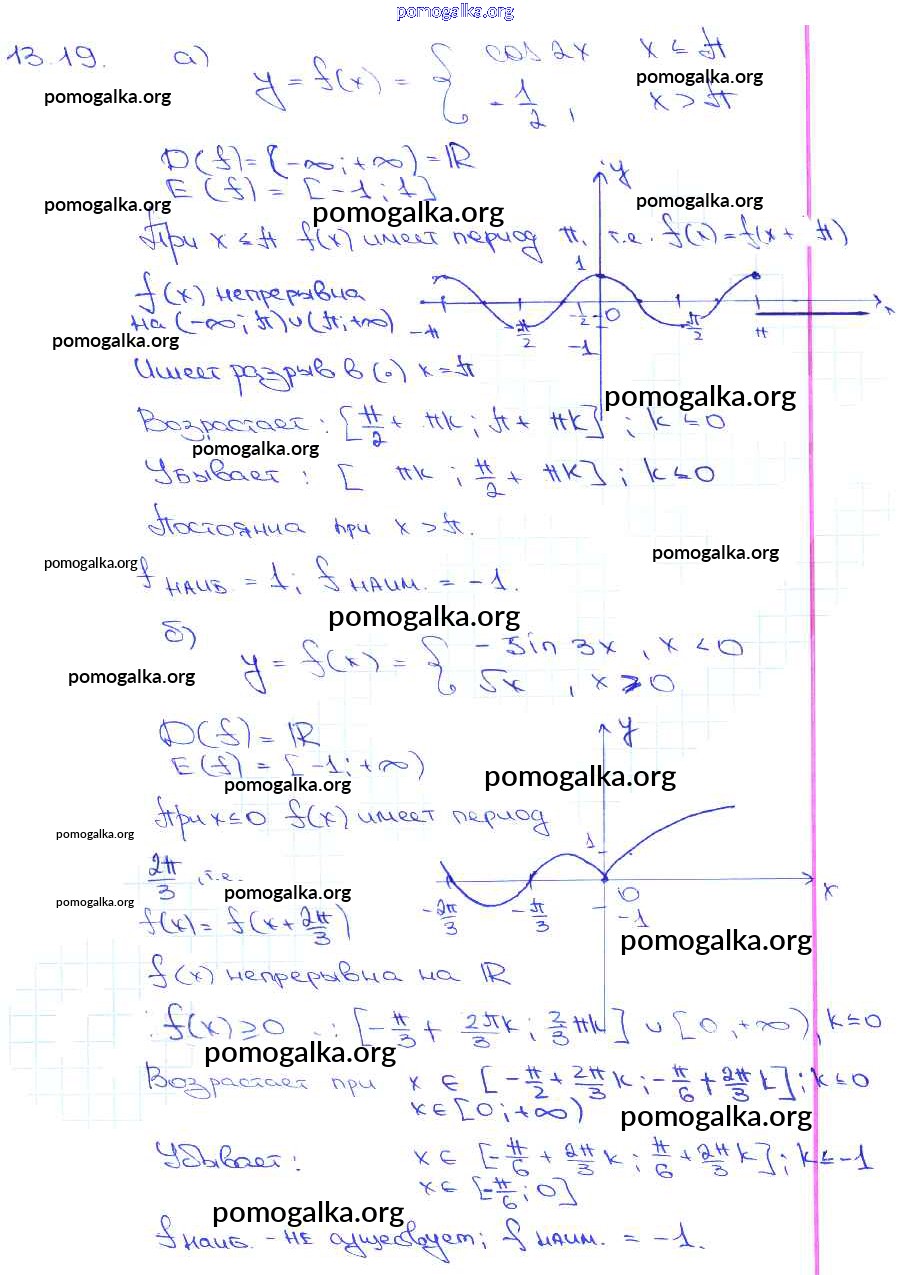 pomogalka.org
13.19. а) y = f(x) = { cos 2x x ≤ π
- 1/2 , x > π
pomogalka.org pomogalka.org
D(f) = (-∞; +∞) = ℝ
E(f) = [-1; 1]
pomogalka.org pomogalka.org pomogalka.org
При x ≤ π f(x) имеет период π, т.е. f(x) = f(x + π)
f(x) непрерывна
на (-∞; π) ∪ (π; +∞)
y 1 -π -π/2 -1/2 0 -1 π/2 π x
pomogalka.org
Имеет разрыв в (·) x = π
pomogalka.org
Возрастает: [π/2 + πk; π + πk]; k ≤ 0
pomogalka.org
Убывает: [ πk; π/2 + πk]; k ≤ 0
Постоянна при x > π.
pomogalka.org
pomogalka.org
f НАИБ. = 1; f НАИМ. = -1.
pomogalka.org
б) y = f(x) = { -sin 3x , x < 0
√x , x ≥ 0
pomogalka.org
D(f) = ℝ
E(f) = [-1; +∞)
pomogalka.org pomogalka.org
При x ≤ 0 f(x) имеет период
pomogalka.org
2π/3, т.е.
pomogalka.org pomogalka.org
f(x) = f(x + 2π/3)
y 1 -2π/3 -π/3 0 -1 x
pomogalka.org
f(x) непрерывна на ℝ
f(x) ≥ 0 : [-π/3 + 2πk/3; 2/3 πk] ∪ [0, +∞), k ≤ 0
pomogalka.org
Возрастает при x ∈ [-π/2 + 2π/3 k; -π/6 + 2π/3 k]; k ≤ 0
x ∈ [0; +∞)
pomogalka.org
Убывает: x ∈ [-π/6 + 2π/3 k; π/6 + 2π/3 k]; k ≤ -1
x ∈ [-π/6; 0]
pomogalka.org
f НАИБ. - НЕ существует; f НАИМ. = -1.